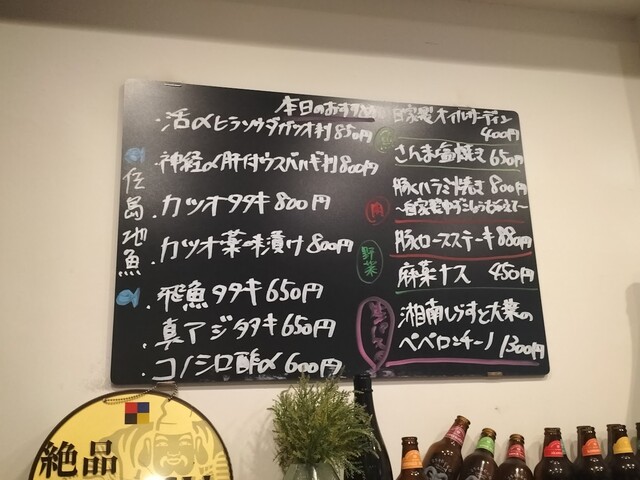 本日のおすすめ
佐島地魚
・活〆ヒラソウダガツオ刺850円
・神経〆肝付ウスバハギ刺800円
・カツオタタキ800円
・カツオ薬味漬け800円
・飛魚タタキ650円
・真アジタタキ650円
・コノシロ酢〆600円
自家製オイルサーディン
400円
さんま塩焼き650円
肉
豚ハラミ焼き800円
〜自家製ゆずこしょうもそえて〜
豚ロースステーキ880円
野菜
麻薬ナス 450円
生パスタ
湘南しらすと大葉の
ペペロンチーノ1300円
絶品